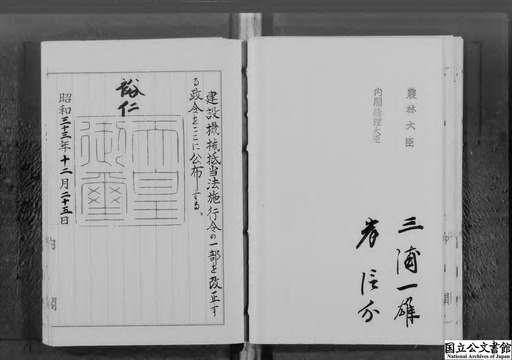 建設機械抵当法施行令の一部を改正す
る政令をここに公布する。
裕仁
天皇
御璽
昭和三十三年十二月二十五日
内閣
農林大臣
三浦一雄
内閣総理大臣
岸信介
国立公文書館
National Archives of Japan